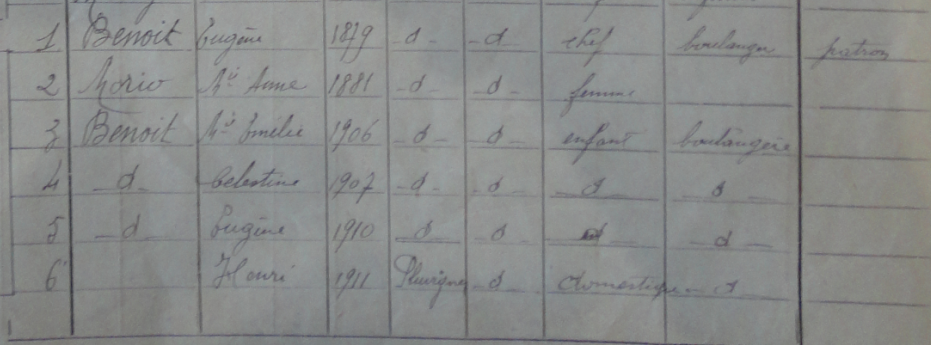 1 Benoit Eugène 1879 -d- -d- chef boulanger patron
2 Morio Mie Anne 1881 -d- -d- femme
3 Benoit Mie Emélie 1906 -d- -d- enfant boulangère
4 -d- Célestine 1907 -d- -d- d d
5 -d- Eugène 1910 d d d d
6 Henri 1911 Pluvigner d domestique d